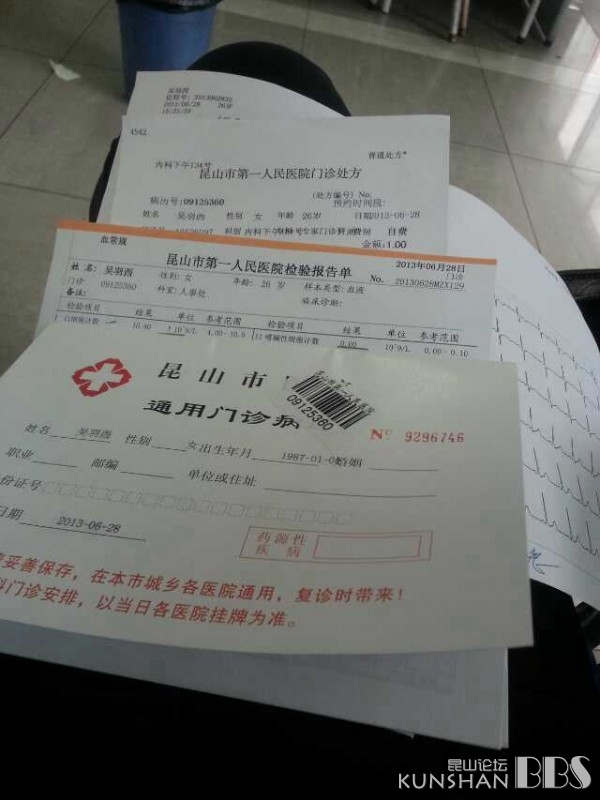 吴羽西
2013/06/28 26岁
4542
普通处方*
内科下午134号
昆山市第一人民医院门诊处方
(处方编号) No:
病历号:09125360
预约时间段:
姓名 吴羽西 性别 女 年龄 26岁 日期2013-06-28
科别 内科下午 费别 自费
金额:1.00
血常规
昆山市第一人民医院检验报告单
2013年06月28日
姓名: 吴羽西 性别: 女 年龄: 26 岁 样本类型: 血液 No. 20130628MZX1129
门诊
门诊 09125360 科室: 人事处 临床诊断:
备注:
检验项目 结果 单位 参考范围 检验项目 结果 单位 参考范围
白细胞计数 10.40 *10^9/L 4.00-10.0 12 嗜碱性细胞计数 0.00 10^9/L 0.00-0.10
昆山市
通用门诊病
09125360
No 9296746
姓名 吴羽西 性别 女出生年月 1987-01-0 婚姻
职业 邮编 单位或住址
份证号
日期 2013-06-28
药源性
疾病
妥善保存，在本市城乡各医院通用，复诊时带来！
科门诊安排，以当日各医院挂牌为准。
昆山论坛
KUNSHAN BBS